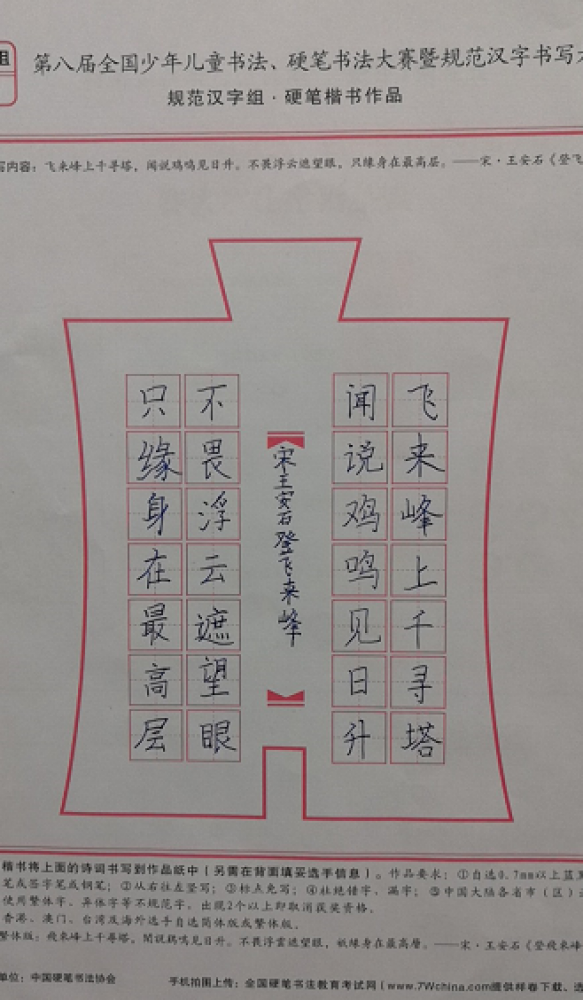 组
第八届全国少年儿童书法、硬笔书法大赛暨规范汉字书写大
规范汉字组·硬笔楷书作品
写内容：飞来峰上千寻塔，闻说鸡鸣见日升。不畏浮云遮望眼，只缘身在最高层。——宋·王安石《登飞
飞来峰上千寻塔
闻说鸡鸣见日升
宋王安石登飞来峰
不畏浮云遮望眼
只缘身在最高层
楷书将上面的诗词书写到作品纸中（另需在背面填妥选手信息）。作品要求：①自选0.7mm以上蓝黑
笔或签字笔或钢笔；②从右往左竖写；③标点免写；④杜绝错字、漏字；⑤中国大陆各省市（区）
使用繁体字、异体字等不规范字，出现2个以上即取消获奖资格。
香港、澳门、台湾及海外选手自选简体版或繁体版。
繁体版：飛來峰上千尋塔，聞說鷄鳴見日升。不畏浮雲遮望眼，祇緣身在最高層。——宋·王安石《登飛來峰
单位：中国硬笔书法协会
手机拍图上传：全国硬笔书法教育考试网（www.7Wchina.com提供样卷下载、